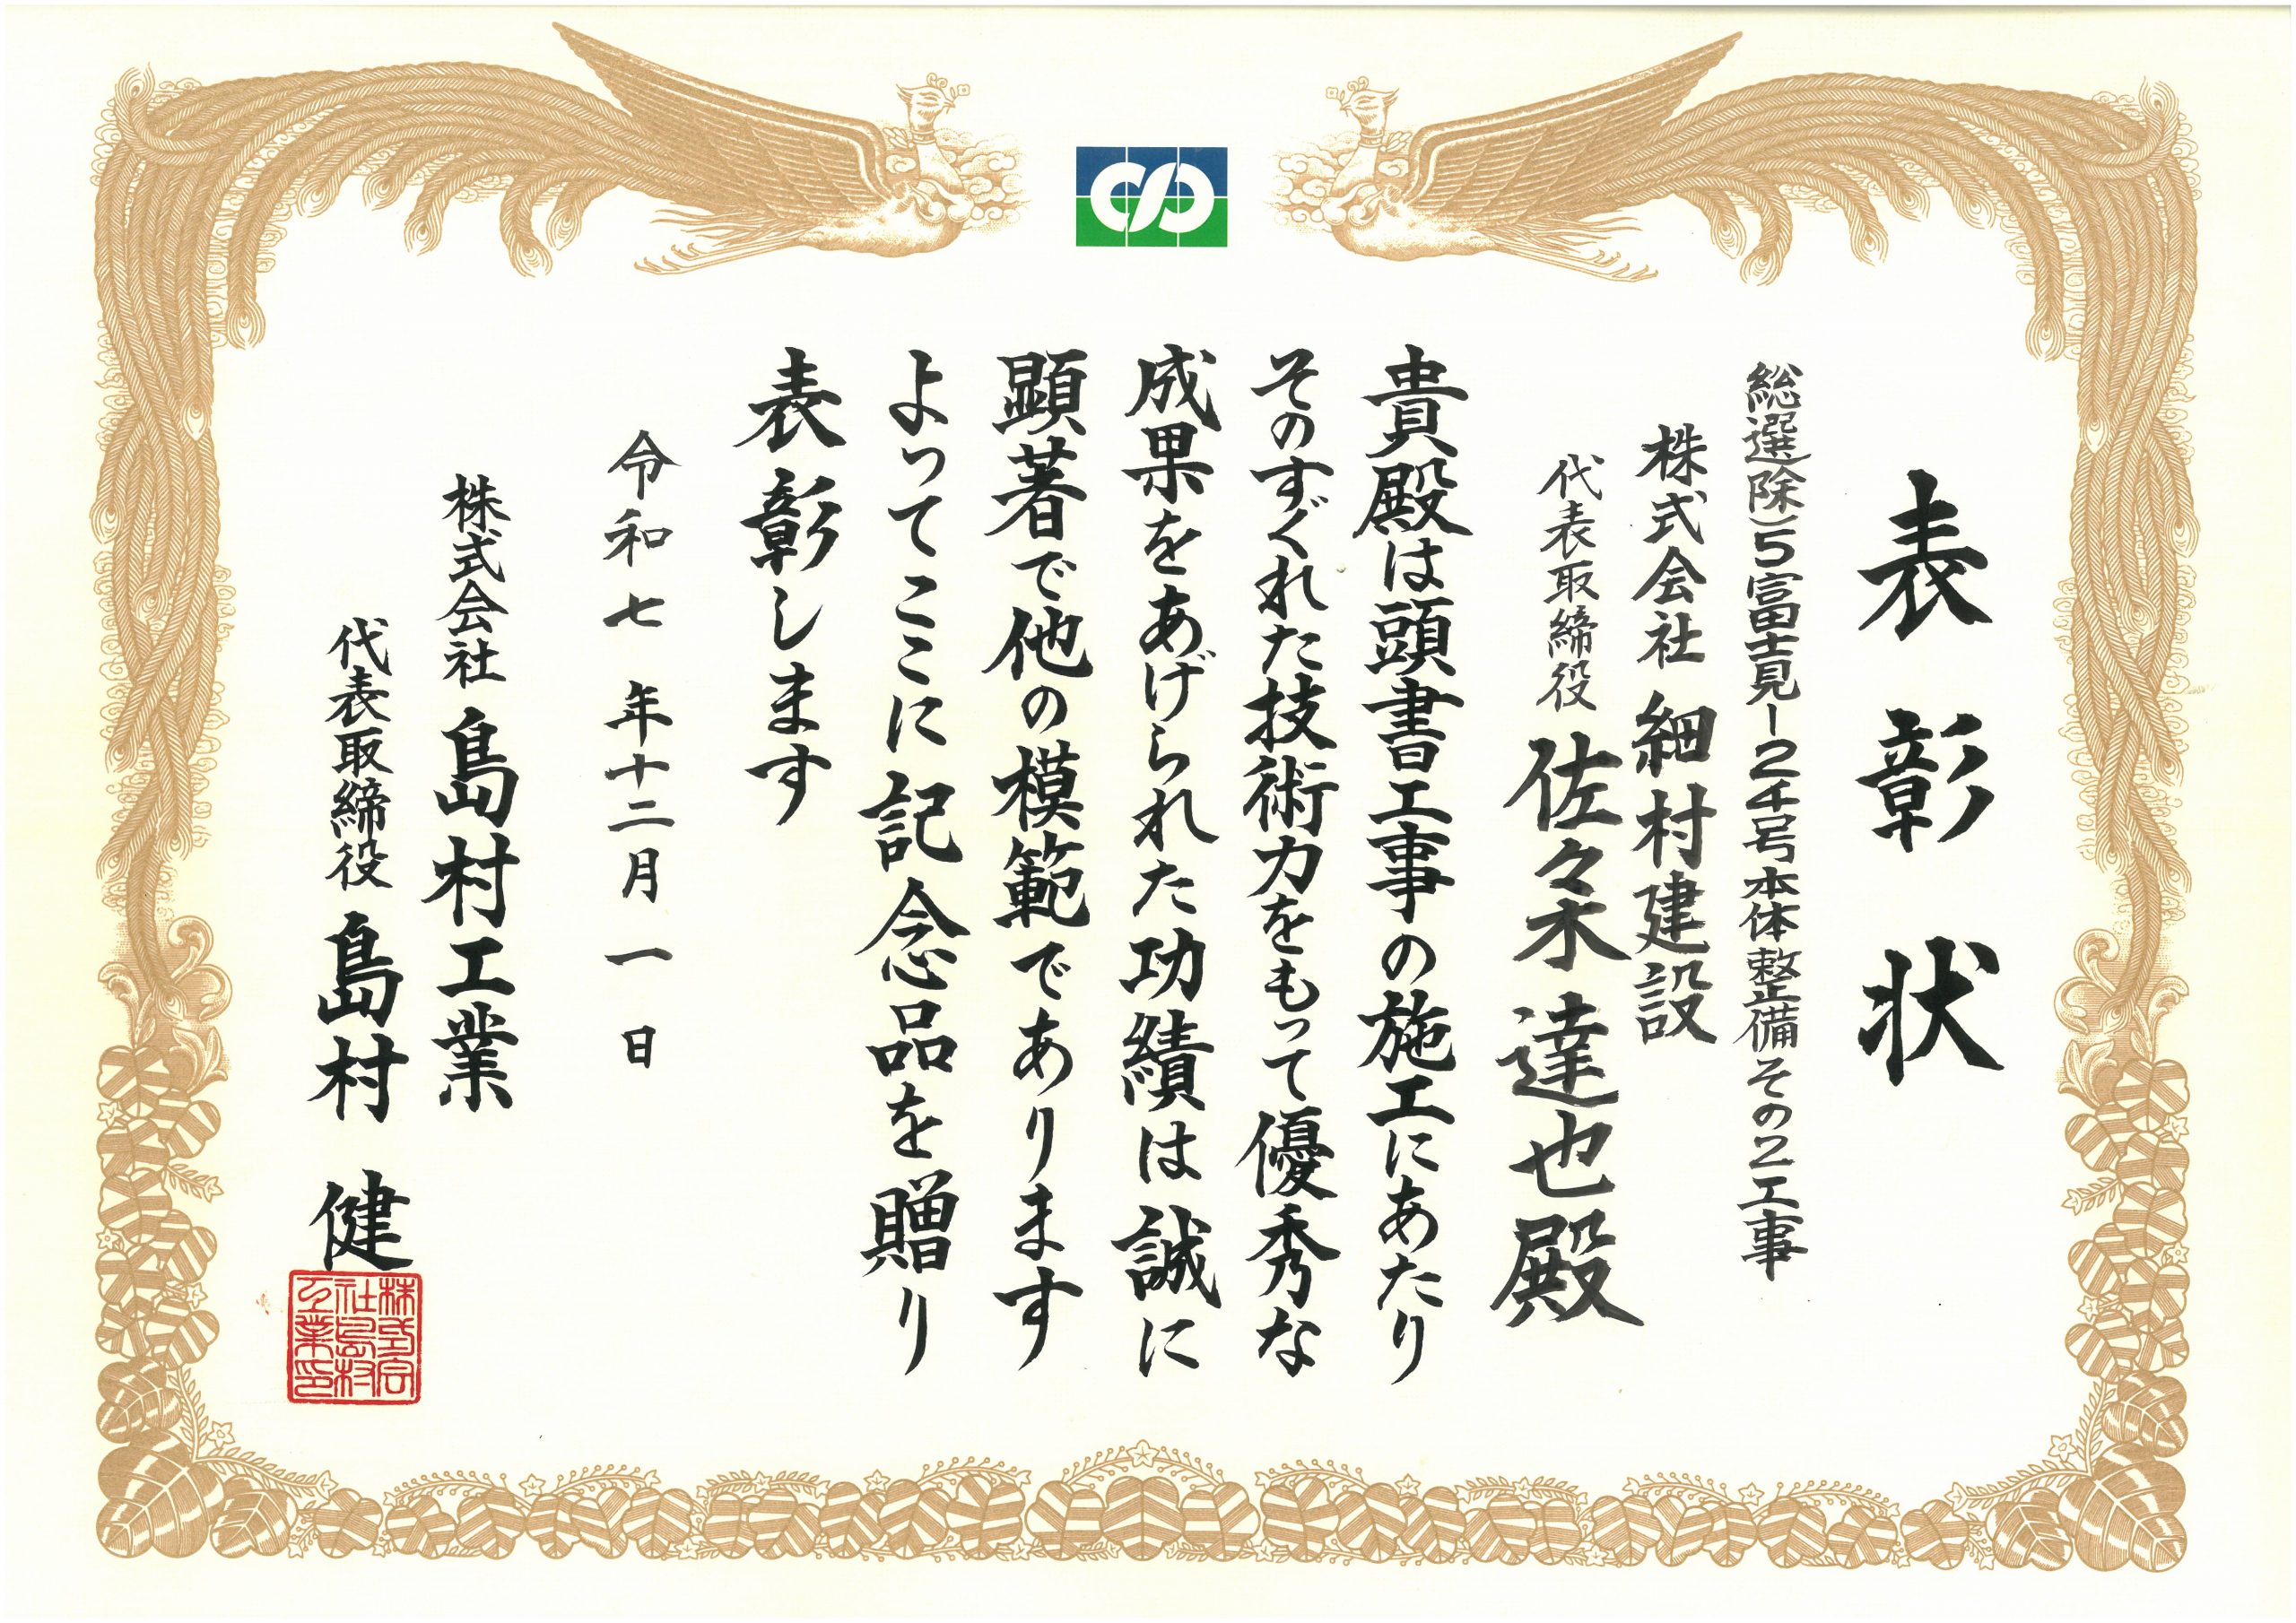 表彰状
総選除)5富士見-24号本体整備その2工事
株式会社 細村建設
代表取締役 佐々木 達也 殿
貴殿は頭書工事の施工にあたり
そのすぐれた技術力をもって優秀な
成果をあげられた功績は誠に
顕著で他の模範であります
よってここに記念品を贈り
表彰します
令和七年十二月一日
株式会社 島村工業
代表取締役 島村 健
株式会
社島村
工業印